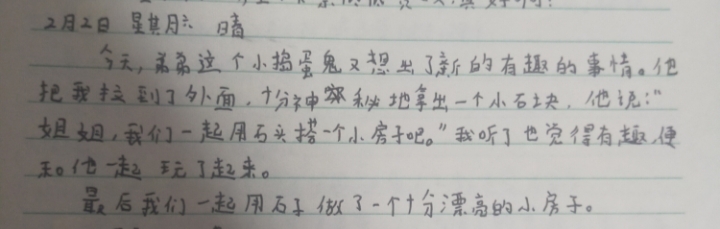 2月2日 星其月六 晴
今天，弟弟这个小捣蛋鬼又想出了新的有趣的事情。他
把我拉到了外面，十分神秘地拿出一个小石块，他说："
姐姐，我们一起用石头搭一个小房子吧。"我听了也觉得有趣，便
和他一起玩了起来。
最后我们一起用石子做了一个十分漂亮的小房子。